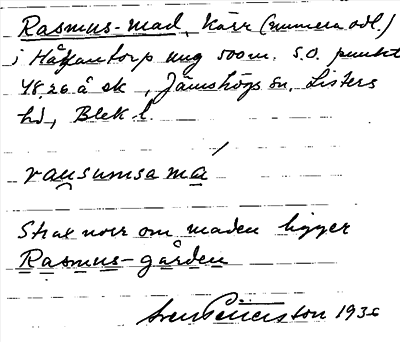 Rasmus-mad, Kärr (numera odl.)
i Håkantorp ung 500 m. S.O. punkt
48,26 å ek, Jämshögs sn, Listers
hd, Blek l.
rausumsa má
Strax norr om maden ligger
Rasmus-gården
Sven Petersson 1936